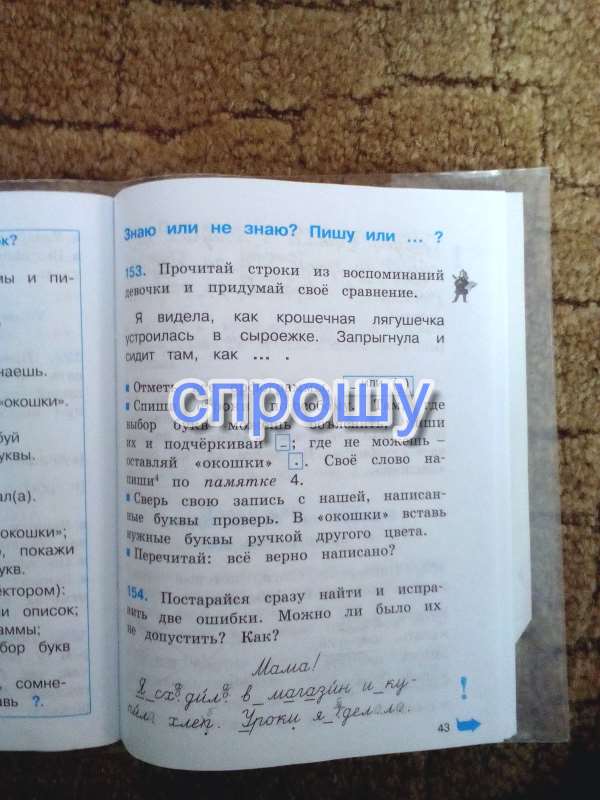 ок?
мы и пи-
наешь.
«окошки».
буй
уквы.
ал(а).
«окошки»;
о, покажи
укв.
ектором):
и описок;
аммы;
бор букв
, сомне-
авь ?.
Знаю или не знаю? Пишу или ... ?
153. Прочитай строки из воспоминаний
девочки и придумай своё сравнение.
Я видела, как крошечная лягушечка
устроилась в сыроежке. Запрыгнула и
сидит там, как ... .
Отметь
Спиши где
выбор букв можешь
их и подчёркивай _; где не можешь –
оставляй «окошки» . . Своё слово на-
пиши⁴ по памятке 4.
Сверь свою запись с нашей, написан-
ные буквы проверь. В «окошки» вставь
нужные буквы ручкой другого цвета.
Перечитай: всё верно написано?
спрошу
154. Постарайся сразу найти и испра-
вить две ошибки. Можно ли было их
не допустить? Как?
Мама!
Я_сходила в_магазин и_ку-
пила хлеб. Уроки я_сделала.
!
43